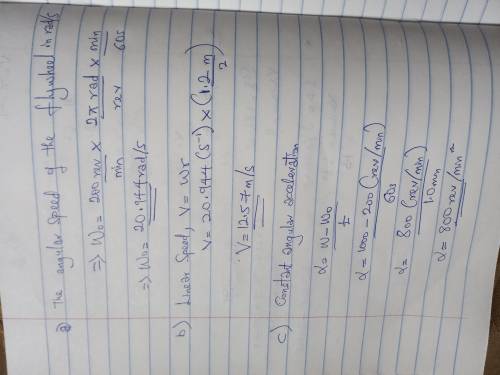 a) The angular speed of the flywheel in rad/s
=> W0 = 200 rev/min × 2π rad/rev × min/60s
=> W0 = 20.944 rad/s
b) Linear Speed, V = Wr
V = 20.944 (s⁻¹) × (1.2 m/2)
V = 12.57 m/s
c) Constant angular acceleration
α = W - W0/t
α = 1000 - 200 (rev/min)/60s
α = 800 (rev/min)/1.0min
α = 800 rev/min²